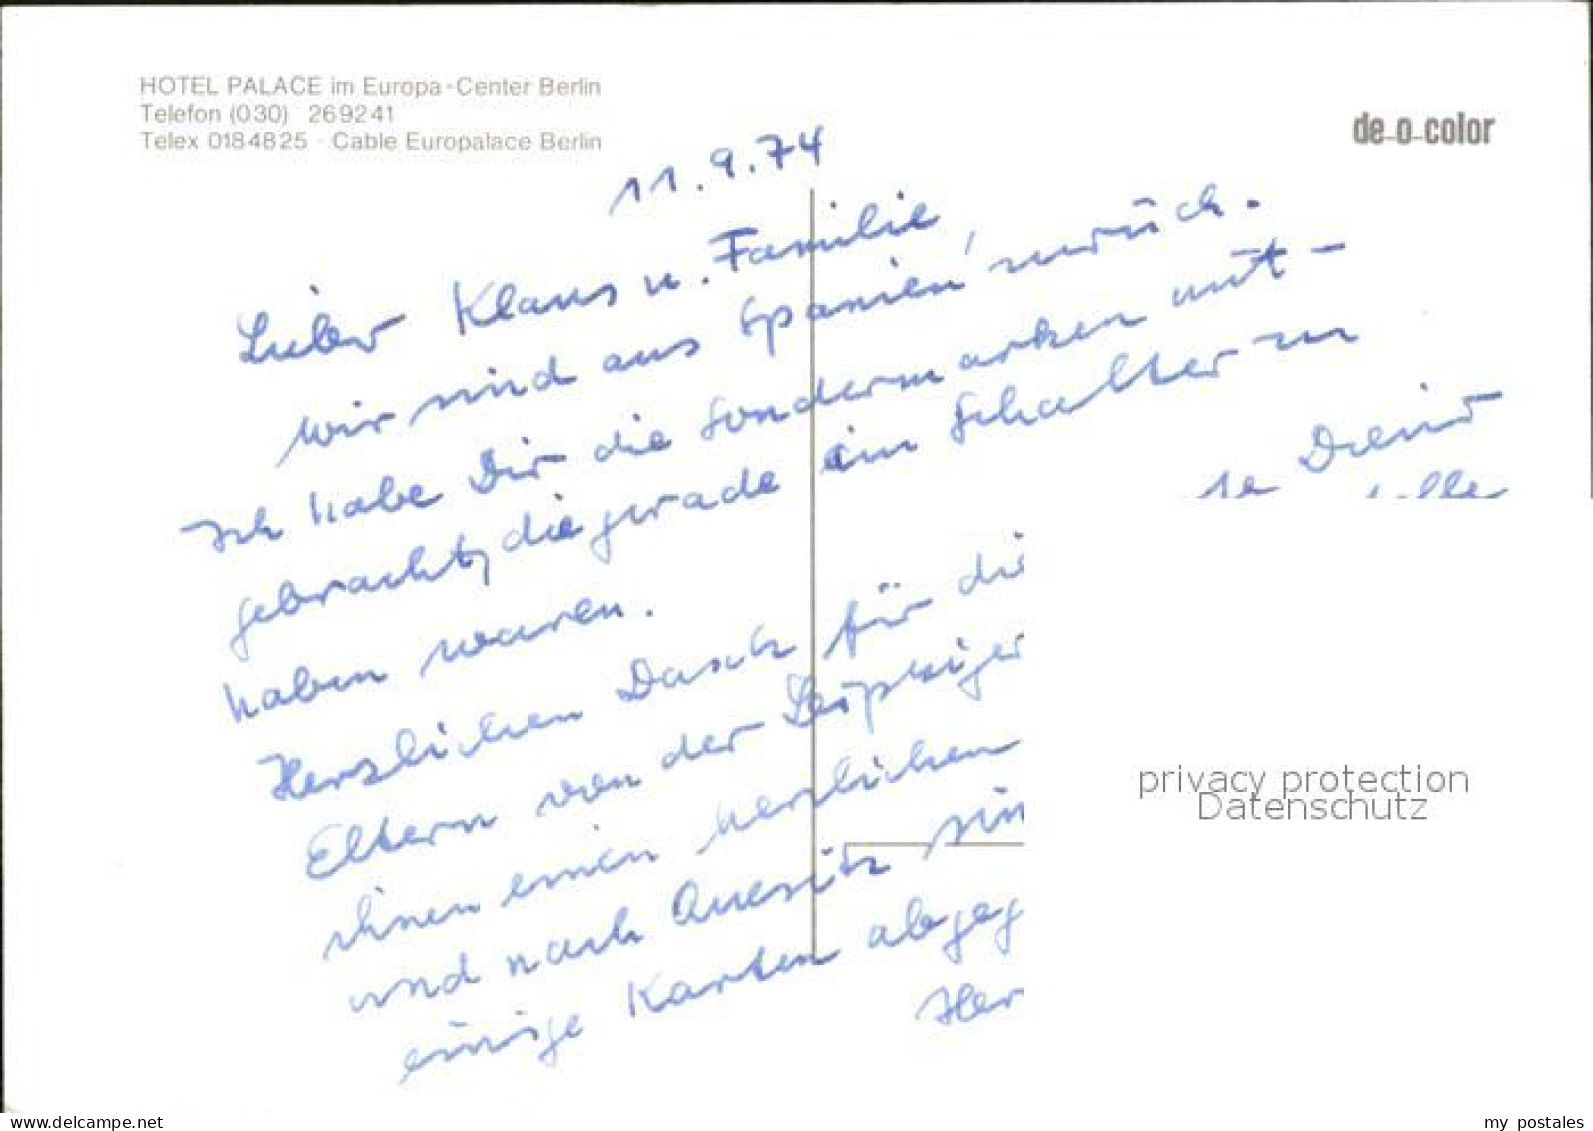 HOTEL PALACE im Europa-Center Berlin
Telefon (030) 269241
Telex 0184825 · Cable Europalace Berlin
de-o-color
11.9.74
Lieber Klaus u. Familie,
wir sind aus Spanien zurück.
Ich habe Dir die Sondermarken mit-
gebracht, die gerade im Schalter zu
haben waren.
Herzlichen Dank für die
Eltern von der Leipziger
ihnen einen herzlichen
und nach
einige Karten abgeg
Her
privacy protection
Datenschutz
www.delcampe.net
my_postales